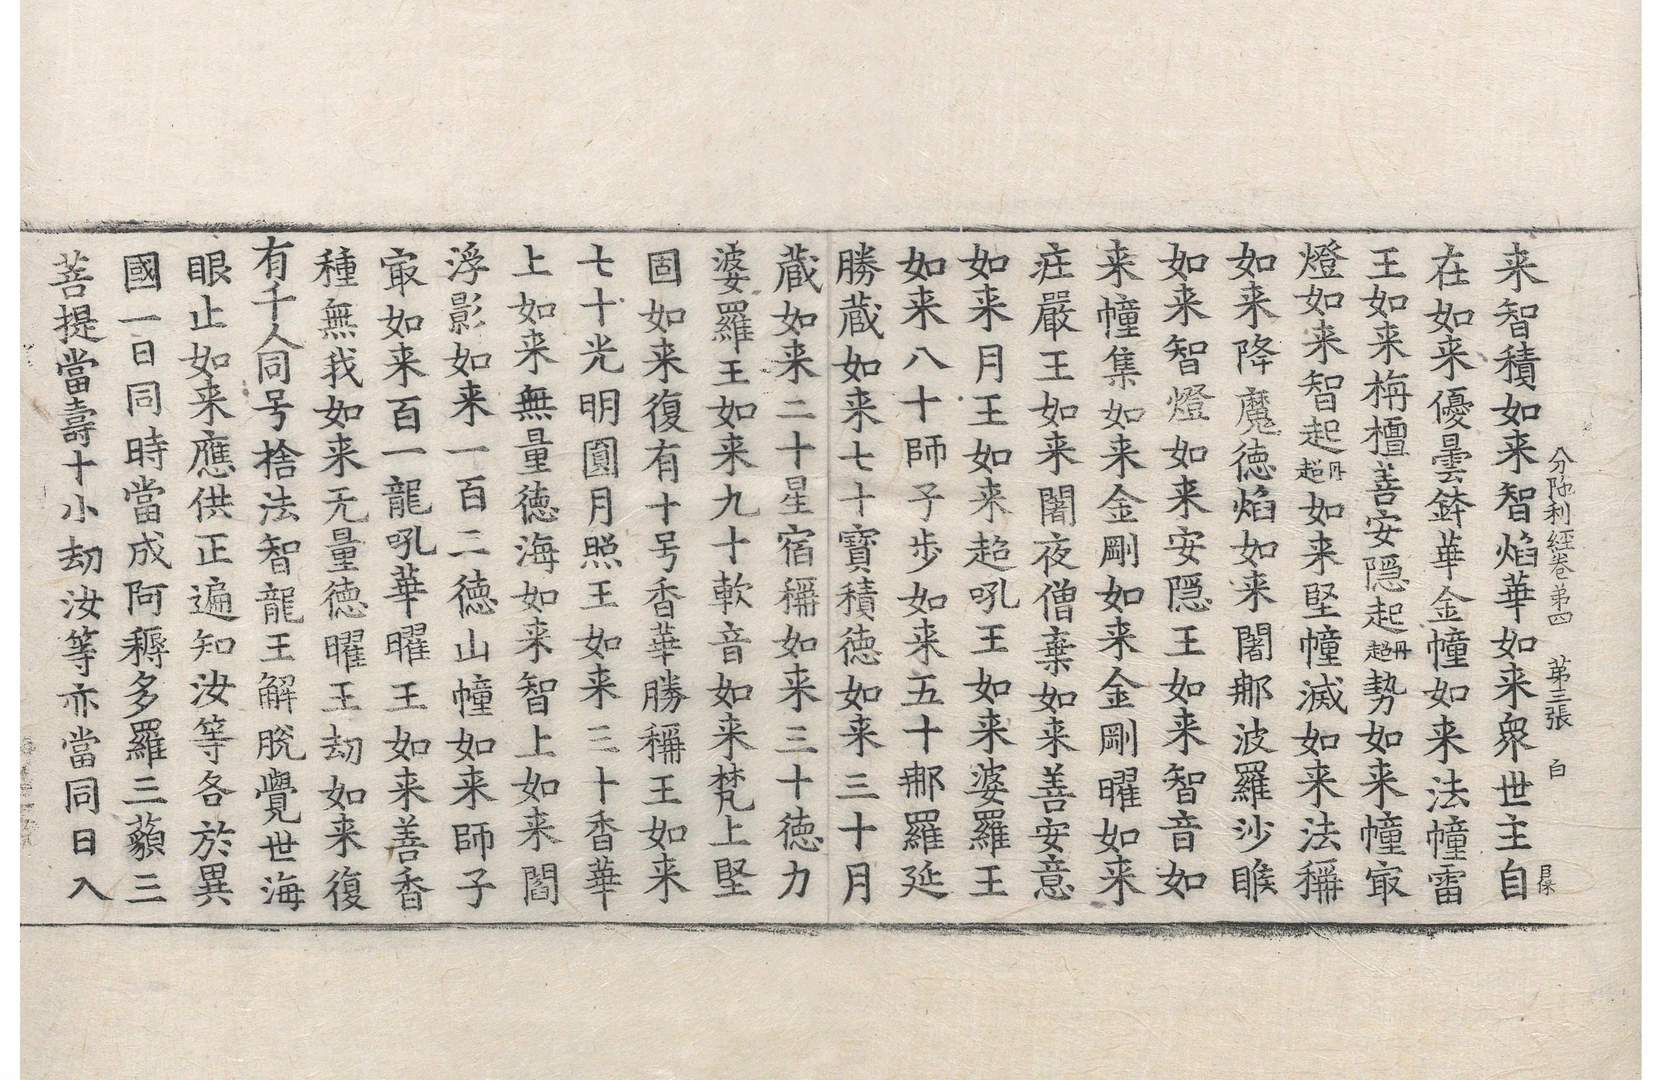 分陁利經卷第四　第三張　白
来智積如来智焰華如来衆世主自
在如来優曇鉢華金幢如来法幢雷
王如来栴檀善安隠起丹超勢如来幢㝡
燈如来智起丹超如来堅幢滅如来法稱
如来降魔徳焰如来闍𨚗波羅沙睺
如来智燈如来安隠王如来智音如
来幢集如来金剛如来金剛曜如来
荘嚴王如来闍夜僧棄如来善安意
如来月王如来超吼王如来婆羅王
如来八十師子歩如来五十𨚗羅延
勝蔵如来七十寶積徳如来三十月
蔵如来二十星宿稱如来三十徳力
婆羅王如来九十軟音如来梵上堅
固如来復有十号香華勝稱王如来
七十光明圓月照王如来三十香華
上如来無量徳海如来智上如来閻
浮影如来一百二徳山幢如来師子
㝡如来百一龍吼華曜王如来善香
種無我如来无量徳曜王劫如来復
有千人同号捨法智龍王解脱覺世海
眼止如来應供正遍知汝等各於異
國一日同時當成阿耨多羅三藐三
菩提當壽十小劫汝等亦當同日入